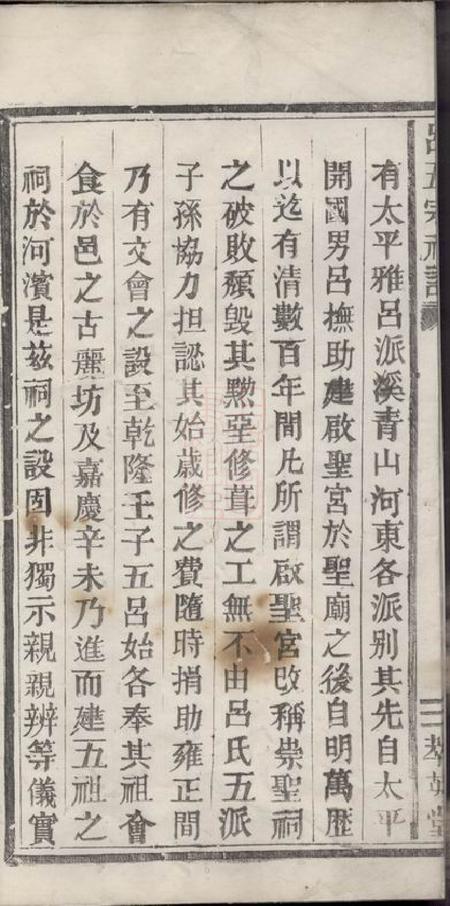 有太平雅呂派溪青山河東各派別其先自太平
開國男呂撫助建啟聖宮於聖廟之後自明萬歷
以迄有清數百年間凡所謂啟聖宮改稱崇聖祠
之破敗頹毀其黝堊修葺之工無不由呂氏五派
子孫協力担認其始歲修之費隨時捐助雍正間
乃有文會之設至乾隆壬子五呂始各奉其祖會
食於邑之古麗坊及嘉慶辛未乃進而建五祖之
祠於河濱是玆祠之設固非獨示親親辨等儀實